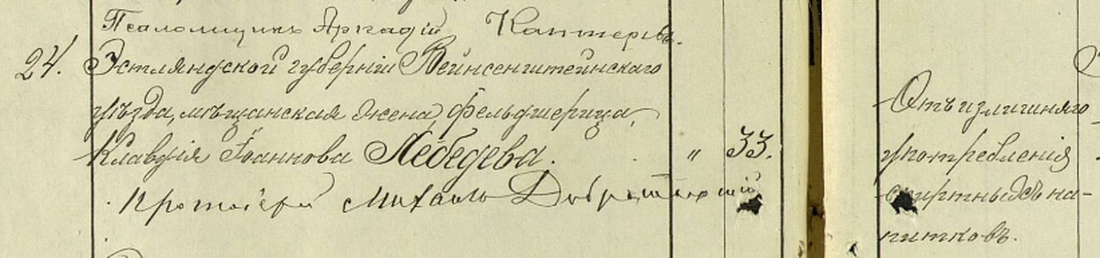 Псаломщикъ Аркадій Каптеревъ.
24. Эстляндской губерніи Вейнсенштейнскаго
уѣзда, мѣщанская жена, фельдшерица,
Клавдія Іоаннова Лебедева. " 33.
Протоіерей Михаилъ
Отъ излишняго
употребленія
спиртныхъ на-
питковъ.